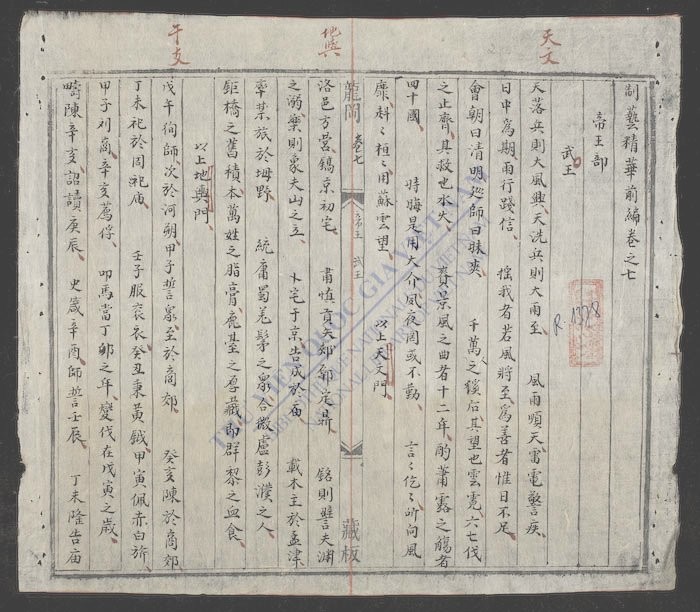 天文
制藝精華前編卷之七
帝王部
武王
天落兵則大風興天洗兵則大雨至 風雨順天雷電警疾
日中爲期雨行踐信 搖我者若風將至爲善者惟日不足
會朝曰清明巡師曰昧爽 千萬之徯后其望也雲霓六七伐
之止齊其救也水火 賡景風之曲者十二年酌蕭露之觴者
四十國 時晦是用大介風夜罔或不勤 言言仡仡所向風
靡糾糾桓桓用蘇雲望 以上天文門
地輿
龍岡 卷七 帝王 武王 藏板
洛邑方營鎬京初宅 肅慎貢矢郟鄏定鼎 銘則譬夫淵
之溺樂則象夫山之立 卜宅于京告成於庙 載木主於孟津
率某旅於坶野 統庸蜀羌髳之衆合微盧彭濮之人
鉅橋之舊積本萬姓之脂膏鹿基之厚藏即群黎之血食
以上地輿門
干支
戊午徇師次於河朔甲子誓衆至於商郊 癸亥陳於商郊
丁未祀於周祀庙 壬子服衮衣癸丑秉黃鉞甲寅佩赤白旂
甲子列商辛亥薦俘 叩馬當丁卯之年變伐在戊寅之歲
疇陳辛亥詔讀庚辰 史箴辛酉師誓壬辰 丁未隆告庙
R.1328
THƯ VIỆN QUỐC GIA VIỆT NAM